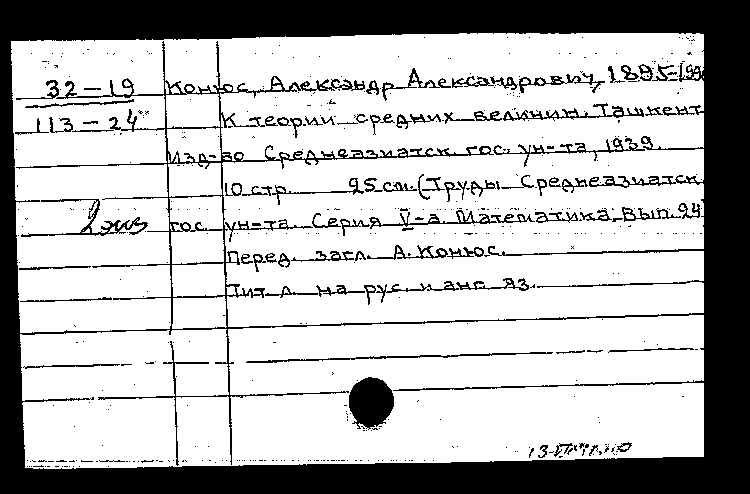 32-19 Конюс, Александр Александрович, 1895-1990
113-24 К теории средних величин. Ташкент
Изд-во Среднеазиатск. гос. ун-та, 1939.
10 стр. 25 см. (Труды Среднеазиатск.
2 экз гос. ун-та. Серия V-а Математика. Вып. 24)
Перед. загл. А. Конюс.
Тит л. на рус. и анг яз.